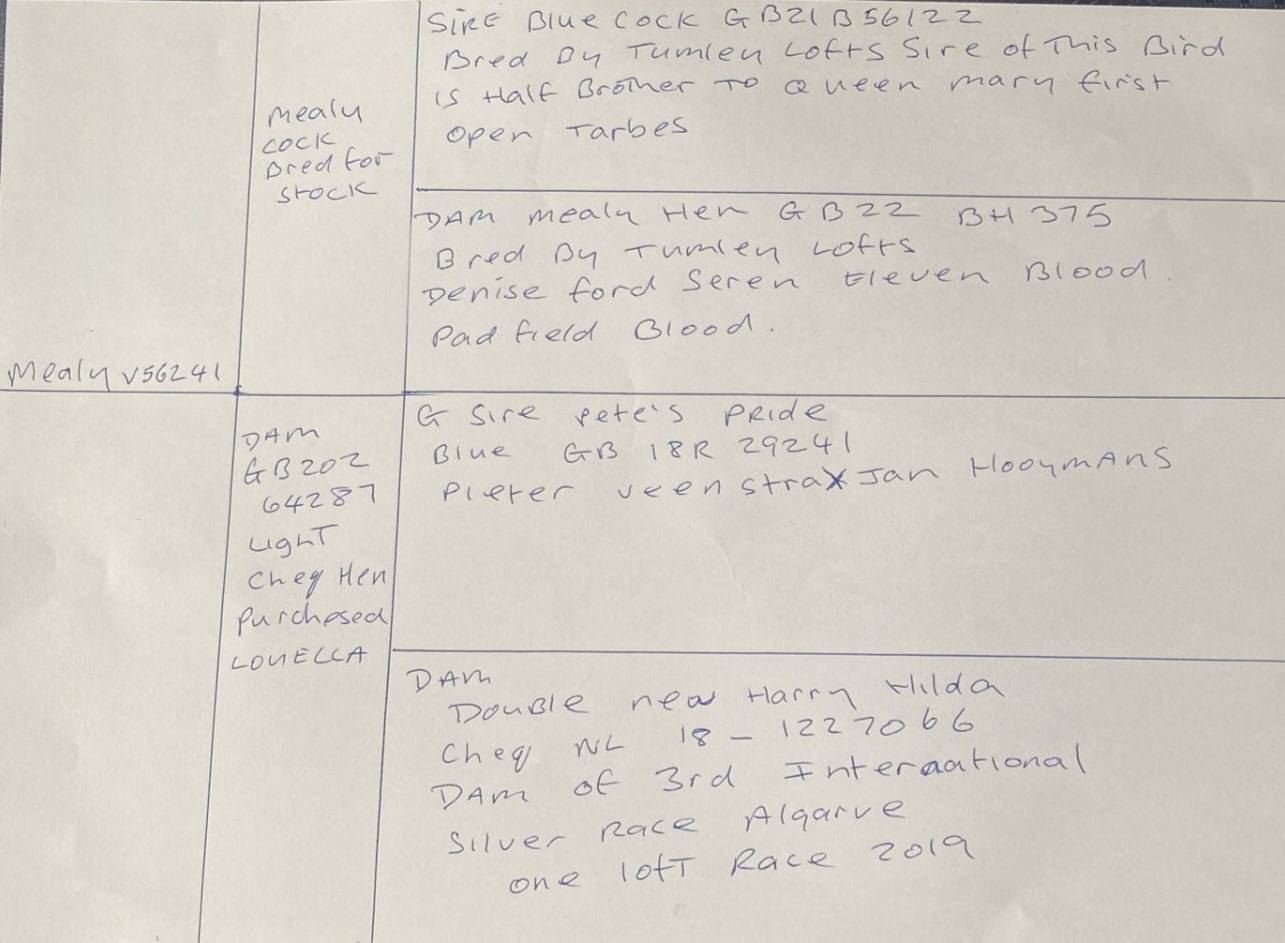 Mealy V56241
Mealy
Cock
Bred for
Stock
Sire Blue Cock GB21B56122
Bred By Tumley Lofts Sire of This Bird
is Half Brother To Queen Mary first
Open Tarbes
DAM Mealy Hen GB22 BH375
Bred By Tumley Lofts
Denise ford Seren Eleven Blood.
Padfield Blood.
DAM
GB20Z
64287
Light
Cheq Hen
Purchased
LOUELLA
G Sire Pete's Pride
Blue GB 18R 29241
Pieter veenstra X Jan Hooymans
DAM
Double new Harry Hilda
Cheq NL 18-1227066
DAM of 3rd International
Silver Race Algarve
one loft Race 2019